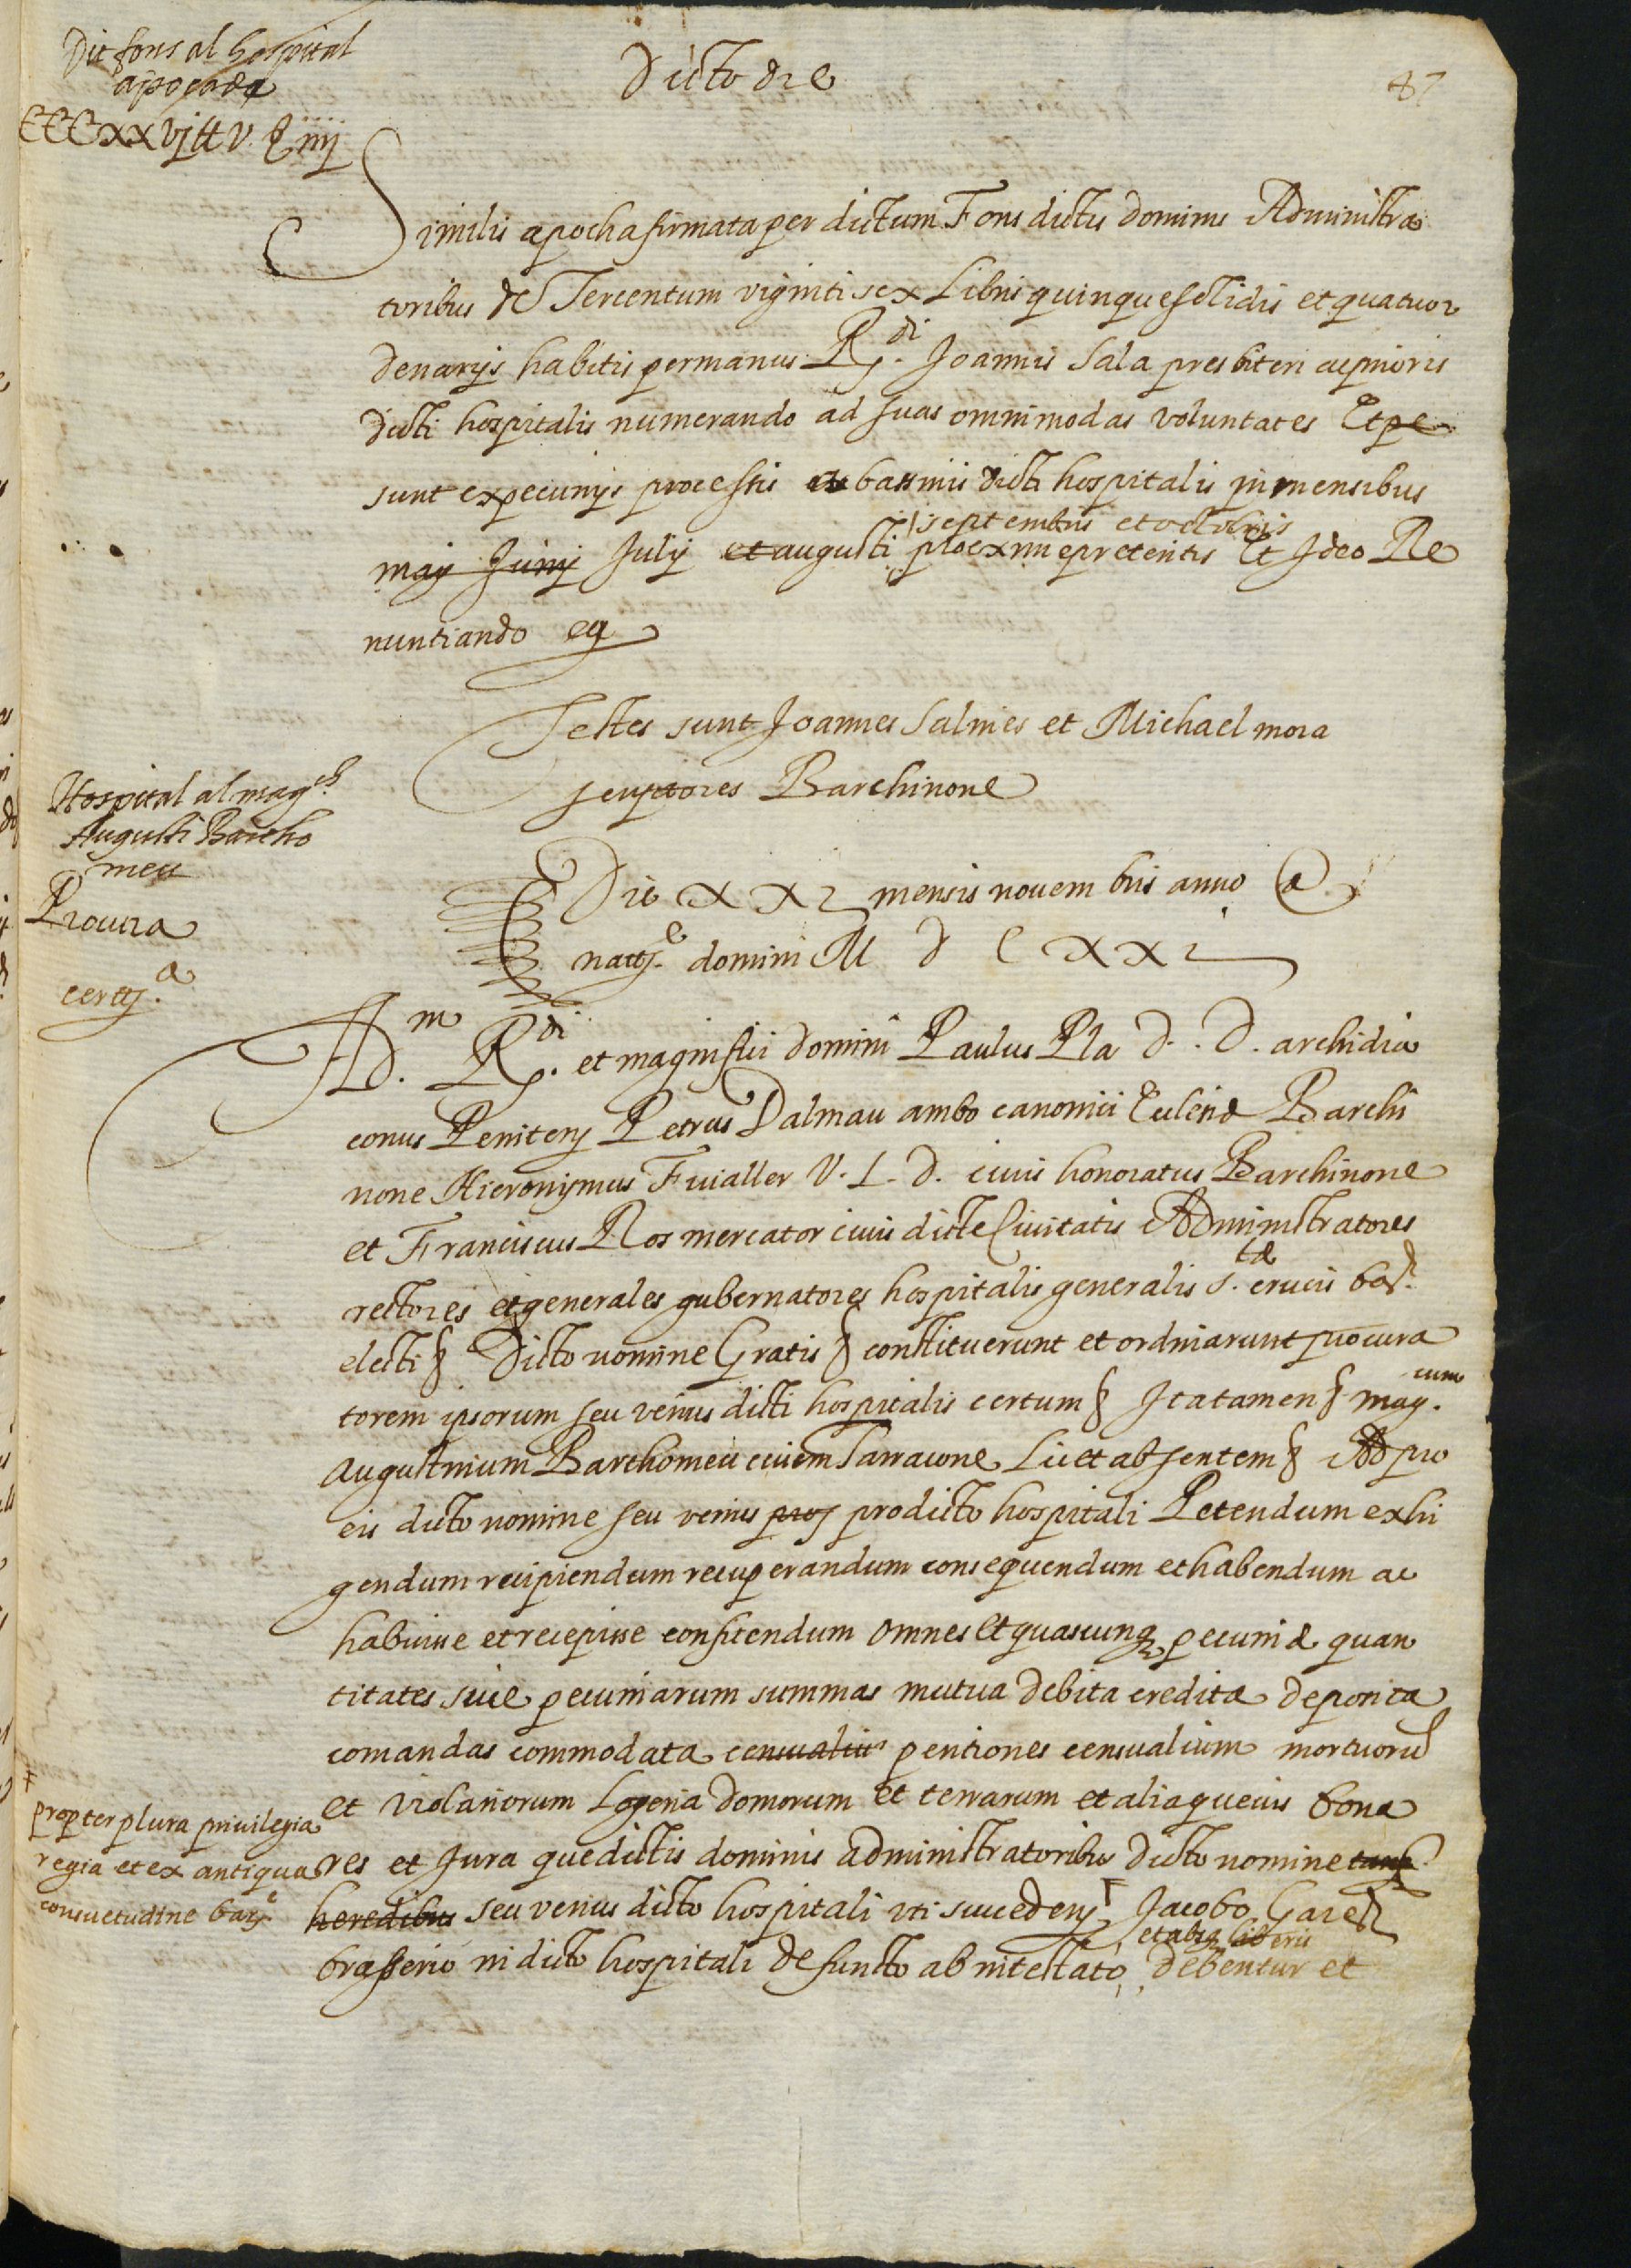 Dit fons al hospital
apocha de
CCCxxvj ℔ v ẞ iiij
Dicto die
87
Similis apocha firmata per dictum Fons dictis dominis Administra
toribus de Tercentum viginti sex Libris quinque solidis et quatuor
denarijs habitis per manus R.di Joannis Sala presbiteri ac prioris
dicti hospitalis numerando ad suas omnimodas voluntates Et pe
sunt ex pecunijs processis ex bassinis dicti hospitalis in mensibus
septembris et octobris
maij Junij Julij et augusti proxime preteritis Et Ideo Re
nuntiando eq
Testes sunt Joannes Salines et Michael mora
scriptores Barchinone
Hospital al mag.ch
Augusti Bartho
meu
Procura
certij.a
Die XXI mensis novembris anno a
natij.e domini M D C XXI
Ad.m R.di et magnifici domini Paulus Pla D. D. archidia
conus Penitens Petrus Dalmau ambo canonici Eclesiæ Barchi
none Hieronijmus Fivaller V. I. D. civis honoratus Barchinone
et Franciscus Ros mercator civis dicte Civitatis Administratores
rectores et generales gubernatores hospitalis generalis S.tæ crucis bar.
electi § Dicto nomine Gratis § constituerunt et ordinarunt procura
torem ipsorum seu verius dicti hospitalis certum § Ita tamen § mag.cum
Augustinum Barthomeu civem Tarracone Licet absentem § Ad pro
eis dicto nomine seu verius pros pro dicto hospitali Petendum exhi
gendum recipiendum recuperandum consequendum et habendum ac
habuisse et recepisse confitendum omnes et quascunq pecuniæ quan
titates sive pecuniarum summas mutua debita credita deposita
comandas commodata censualiu pentiones censualium mortuoru
et violariorum Logeria domorum et terrarum et aliaquevis bona
res et Jura que dictis dominis administratoribus dicto nomine tanq
heredibus seu verius dicto hospitali uti succedens ⸸ Jacobo Garer
et absq liberis
brasserio in dicto hospitali defuncto ab intestato debentur et
⸸
propter plura privilegia
regia et ex antiqua
consuetudine barne